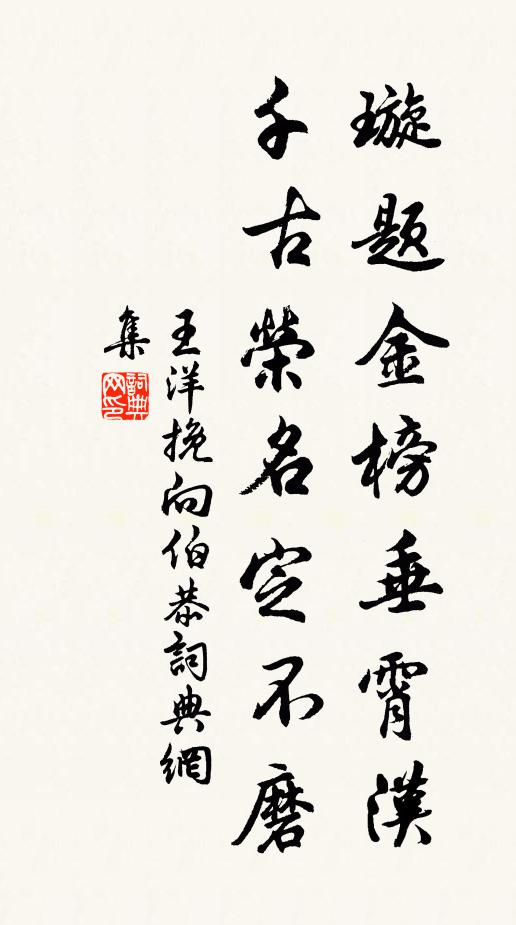 璇题金榜垂霄漢
千古榮名定不磨
王洋挽向伯恭詞典網
集
詞典
网印